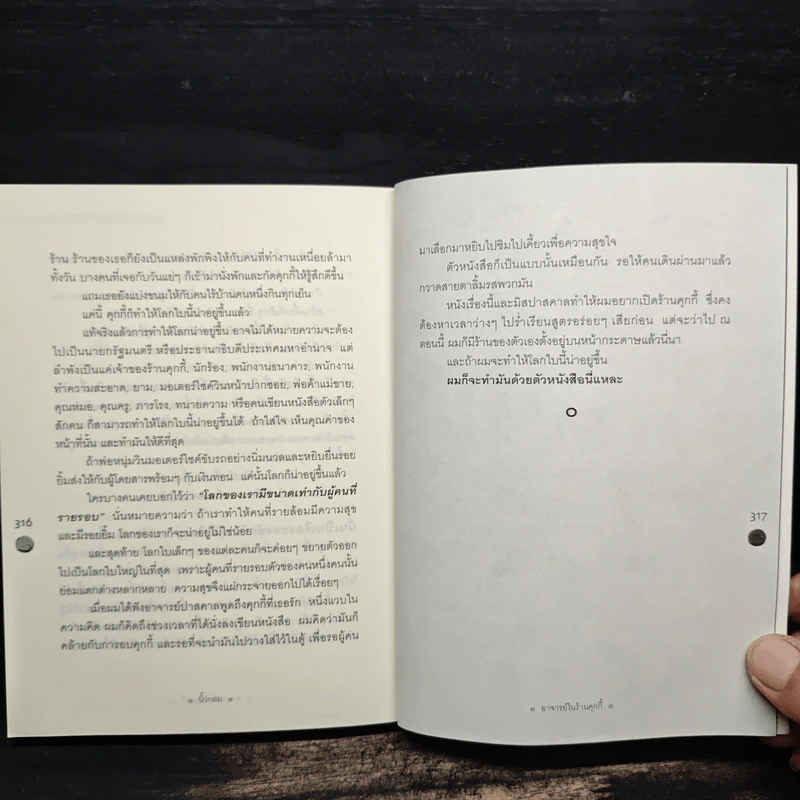 ร้าน ร้านของเธอก็ยังเป็นแหล่งพักพิงให้กับคนที่ทำงานเหนื่อยล้ามา
ทั้งวัน บางคนที่เจอกับวันแย่ๆ ก็เข้ามานั่งพักและกัดคุกกี้ให้รู้สึกดีขึ้น
แถมเธอยังแบ่งขนมให้กับคนไร้บ้านคนหนึ่งกินทุกเย็น
แค่นี้ คุกกี้ก็ทำให้โลกใบนี้น่าอยู่ขึ้นแล้ว
แท้จริงแล้วการทำให้โลกน่าอยู่ขึ้น อาจไม่ได้หมายความจะต้อง
ไปเป็นนายกรัฐมนตรี หรือประธานาธิบดีประเทศมหาอำนาจ แต่
ลำพังเป็นแค่เจ้าของร้านคุกกี้, นักร้อง, พนักงานธนาคาร, พนักงาน
ทำความสะอาด, ยาม, มอเตอร์ไซค์วินหน้าปากซอย, พ่อค้าแม่ขาย,
คุณหมอ, คุณครู, ภารโรง, ทนายความ หรือคนเขียนหนังสือตัวเล็กๆ
สักคน ก็สามารถทำให้โลกใบนี้น่าอยู่ขึ้นได้ ถ้าใส่ใจ เห็นคุณค่าของ
หน้าที่นั้น และทำมันให้ดีที่สุด
ถ้าพ่อหนุ่มวินมอเตอร์ไซค์ขับรถอย่างนิ่มนวลและหยิบยื่นรอย
ยิ้มส่งให้กับผู้โดยสารพร้อมๆ กับเงินทอน แค่นั้นโลกก็น่าอยู่ขึ้นแล้ว
ใครบางคนเคยบอกไว้ว่า “โลกของเรามีขนาดเท่ากับผู้คนที่
รายรอบ” นั่นหมายความว่า ถ้าเราทำให้คนที่รายล้อมมีความสุข
และมีรอยยิ้ม โลกของเราก็จะน่าอยู่ไม่ใช่น้อย
และสุดท้าย โลกใบเล็กๆ ของแต่ละคนก็จะค่อยๆ ขยายตัวออก
ไปเป็นโลกใบใหญ่ในที่สุด เพราะผู้คนที่รายรอบตัวของคนหนึ่งคนนั้น
ย่อมแตกต่างหลากหลาย ความสุขจึงแผ่กระจายออกไปได้เรื่อยๆ
เมื่อผมได้ฟังอาจารย์ปาสคาลพูดถึงคุกกี้ที่เธอรัก หนึ่งแวบใน
ความคิด ผมก็คิดถึงช่วงเวลาที่ได้นั่งลงเขียนหนังสือ ผมคิดว่ามันก็
คล้ายกับการอบคุกกี้ และรอที่จะนำมันไปวางใส่ไว้ในตู้ เพื่อรอผู้คน
316
นิ้วกลม
มาเลือกมาหยิบไปชิมไปเคี้ยวเพื่อความสุขใจ
ตัวหนังสือก็เป็นแบบนั้นเหมือนกัน รอให้คนเดินผ่านมาแล้ว
กวาดสายตาลิ้มรสพวกมัน
หนังเรื่องนี้และมิสปาสคาลทำให้ผมอยากเปิดร้านคุกกี้ ซึ่งคง
ต้องหาเวลาว่างๆ ไปร่ำเรียนสูตรอร่อยๆ เสียก่อน แต่จะว่าไป ณ
ตอนนี้ ผมก็มีร้านของตัวเองตั้งอยู่บนหน้ากระดาษแล้วนี่นา
และถ้าผมจะทำให้โลกใบนี้น่าอยู่ขึ้น
ผมก็จะทำมันด้วยตัวหนังสือนี่แหละ
317
อาจารย์ในร้านคุกกี้